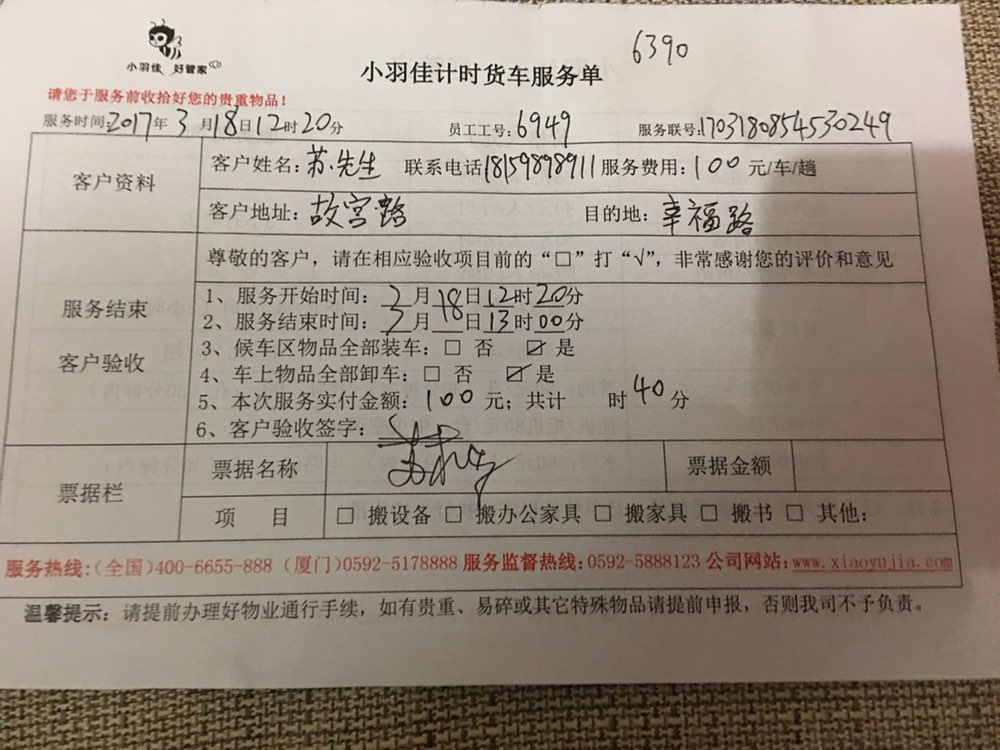 6390
小羽佳 好管家
小羽佳计时货车服务单
请您于服务前收拾好您的贵重物品！
服务时间:2017年3月18日12时20分 员工工号:6949 服务联号:1703180854530249
客户资料 客户姓名:苏先生 联系电话18159898911服务费用:100元/车/趟
客户地址:故宫路 目的地:幸福路
尊敬的客户，请在相应验收项目前的“□”打“√”，非常感谢您的评价和意见
服务结束
客户验收
1、服务开始时间：3月18日12时20分
2、服务结束时间：3月18日13时00分
3、候车区物品全部装车：□ 否 ☑ 是
4、车上物品全部卸车：□ 否 ☑ 是
5、本次服务实付金额：100元；共计 时40分
6、客户验收签字：
票据栏 票据名称 票据金额
项 目 □ 搬设备 □ 搬办公家具 □ 搬家具 □ 搬书 □ 其他：
服务热线:(全国)400-6655-888 (厦门)0592-5178888 服务监督热线:0592-5888123 公司网站:www.xiaoyujia.com
温馨提示：请提前办理好物业通行手续，如有贵重、易碎或其它特殊物品请提前申报，否则我司不予负责。